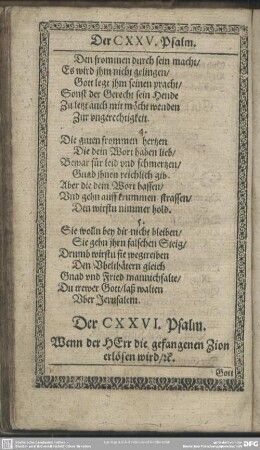 Der CXXV. Psalm.
Den frommen durch sein macht/
Es wird jhm nicht gelingen/
Gott legt jhm seinen pracht/
Sonst der Gerecht sein Hende
Zu letzt auch mit möcht wenden
Zur vngerechtigkeit.
4.
Die guten frommen hertzen
Die dein Wort haben lieb/
Bewar für leid vnd schmertzen/
Gnad jhnen reichlich gib.
Aber die dein Wort hassen/
Vnd gehn auff krummen strassen/
Den wirstu nimmer hold.
5.
Sie wolln bey dir nicht bleiben/
Sie gehn jhrn falschen Steig/
Drumb wirstu sie wegtreiben
Den Vbelthätern gleich
Gnad vnd Fried mannichfalte/
Du trewer Gott/ laß walten
Vber Jerusalem.
Der CXXVI. Psalm.
Wenn der HErr die gefangenen Zion
erlösen wird/ rc.
Gott
DFG